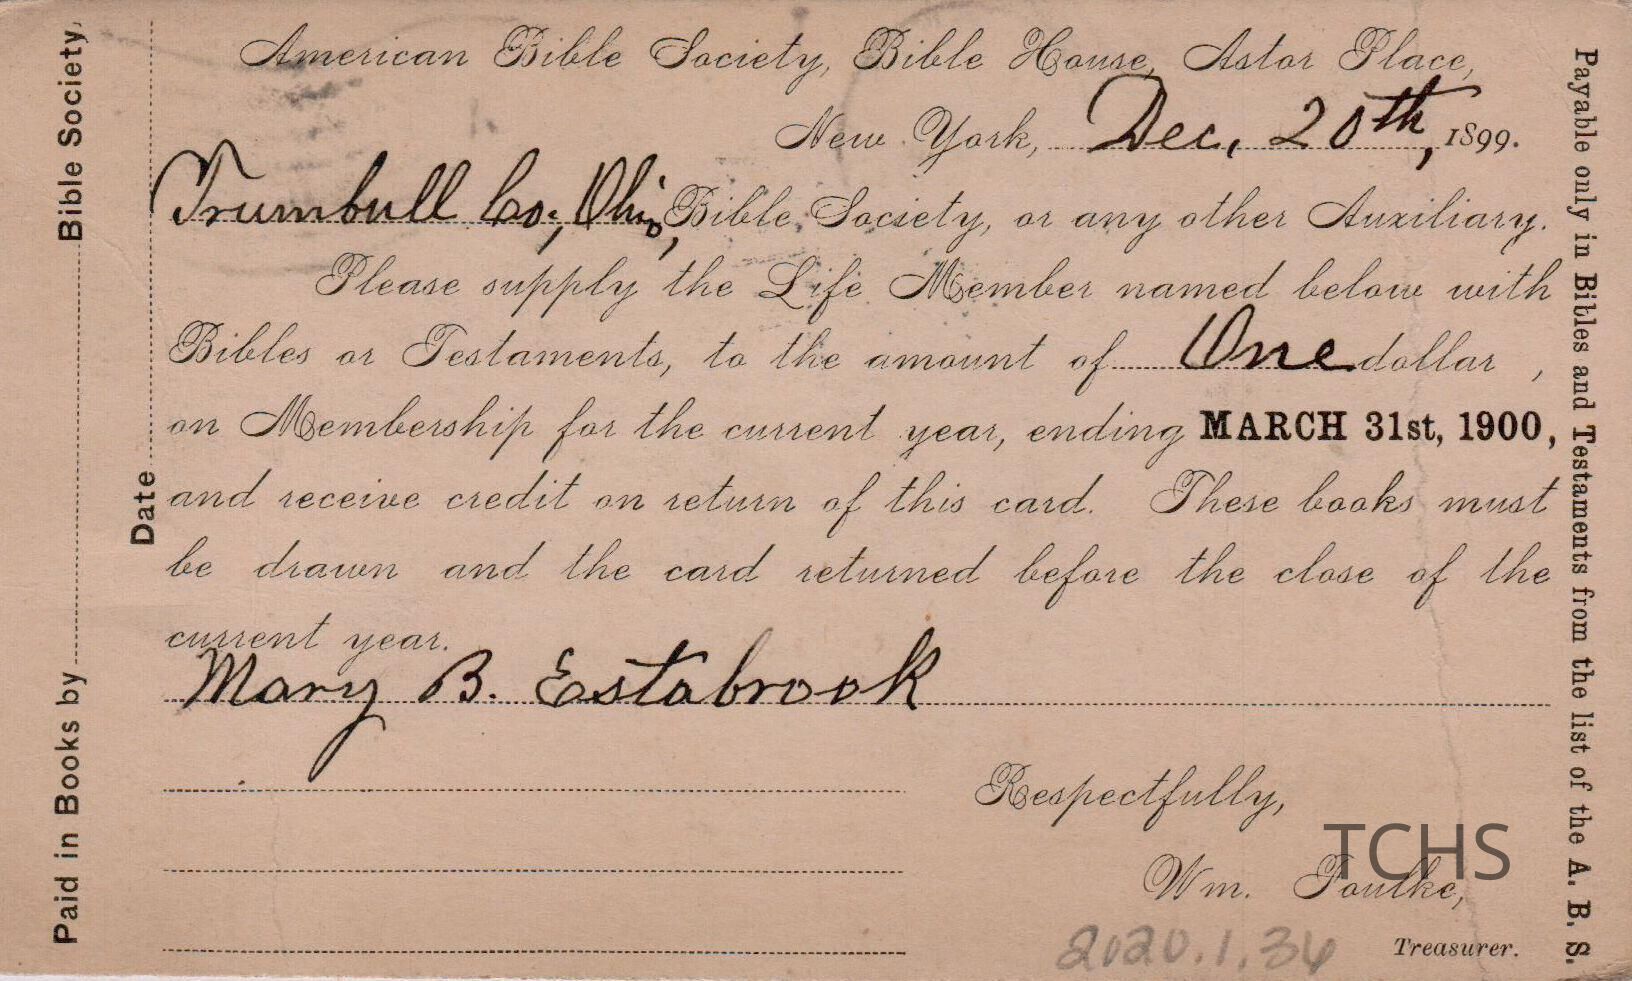 American Bible Society, Bible House, Astor Place,
New York, Dec. 20th, 1899.
Trumbull Co., Ohio, Bible Society, or any other Auxiliary.
Please supply the Life Member named below with
Bibles or Testaments, to the amount of One dollar ,
on Membership for the current year, ending MARCH 31st, 1900,
and receive credit on return of this card. These books must
be drawn and the card returned before the close of the
current year.
Mary B. Estabrook
Respectfully,
Wm. Foulke,
Treasurer.
Paid in Books by Bible Society,
Date
Payable only in Bibles and Testaments from the list of the A. B. S.
TCHS
2020.1.36